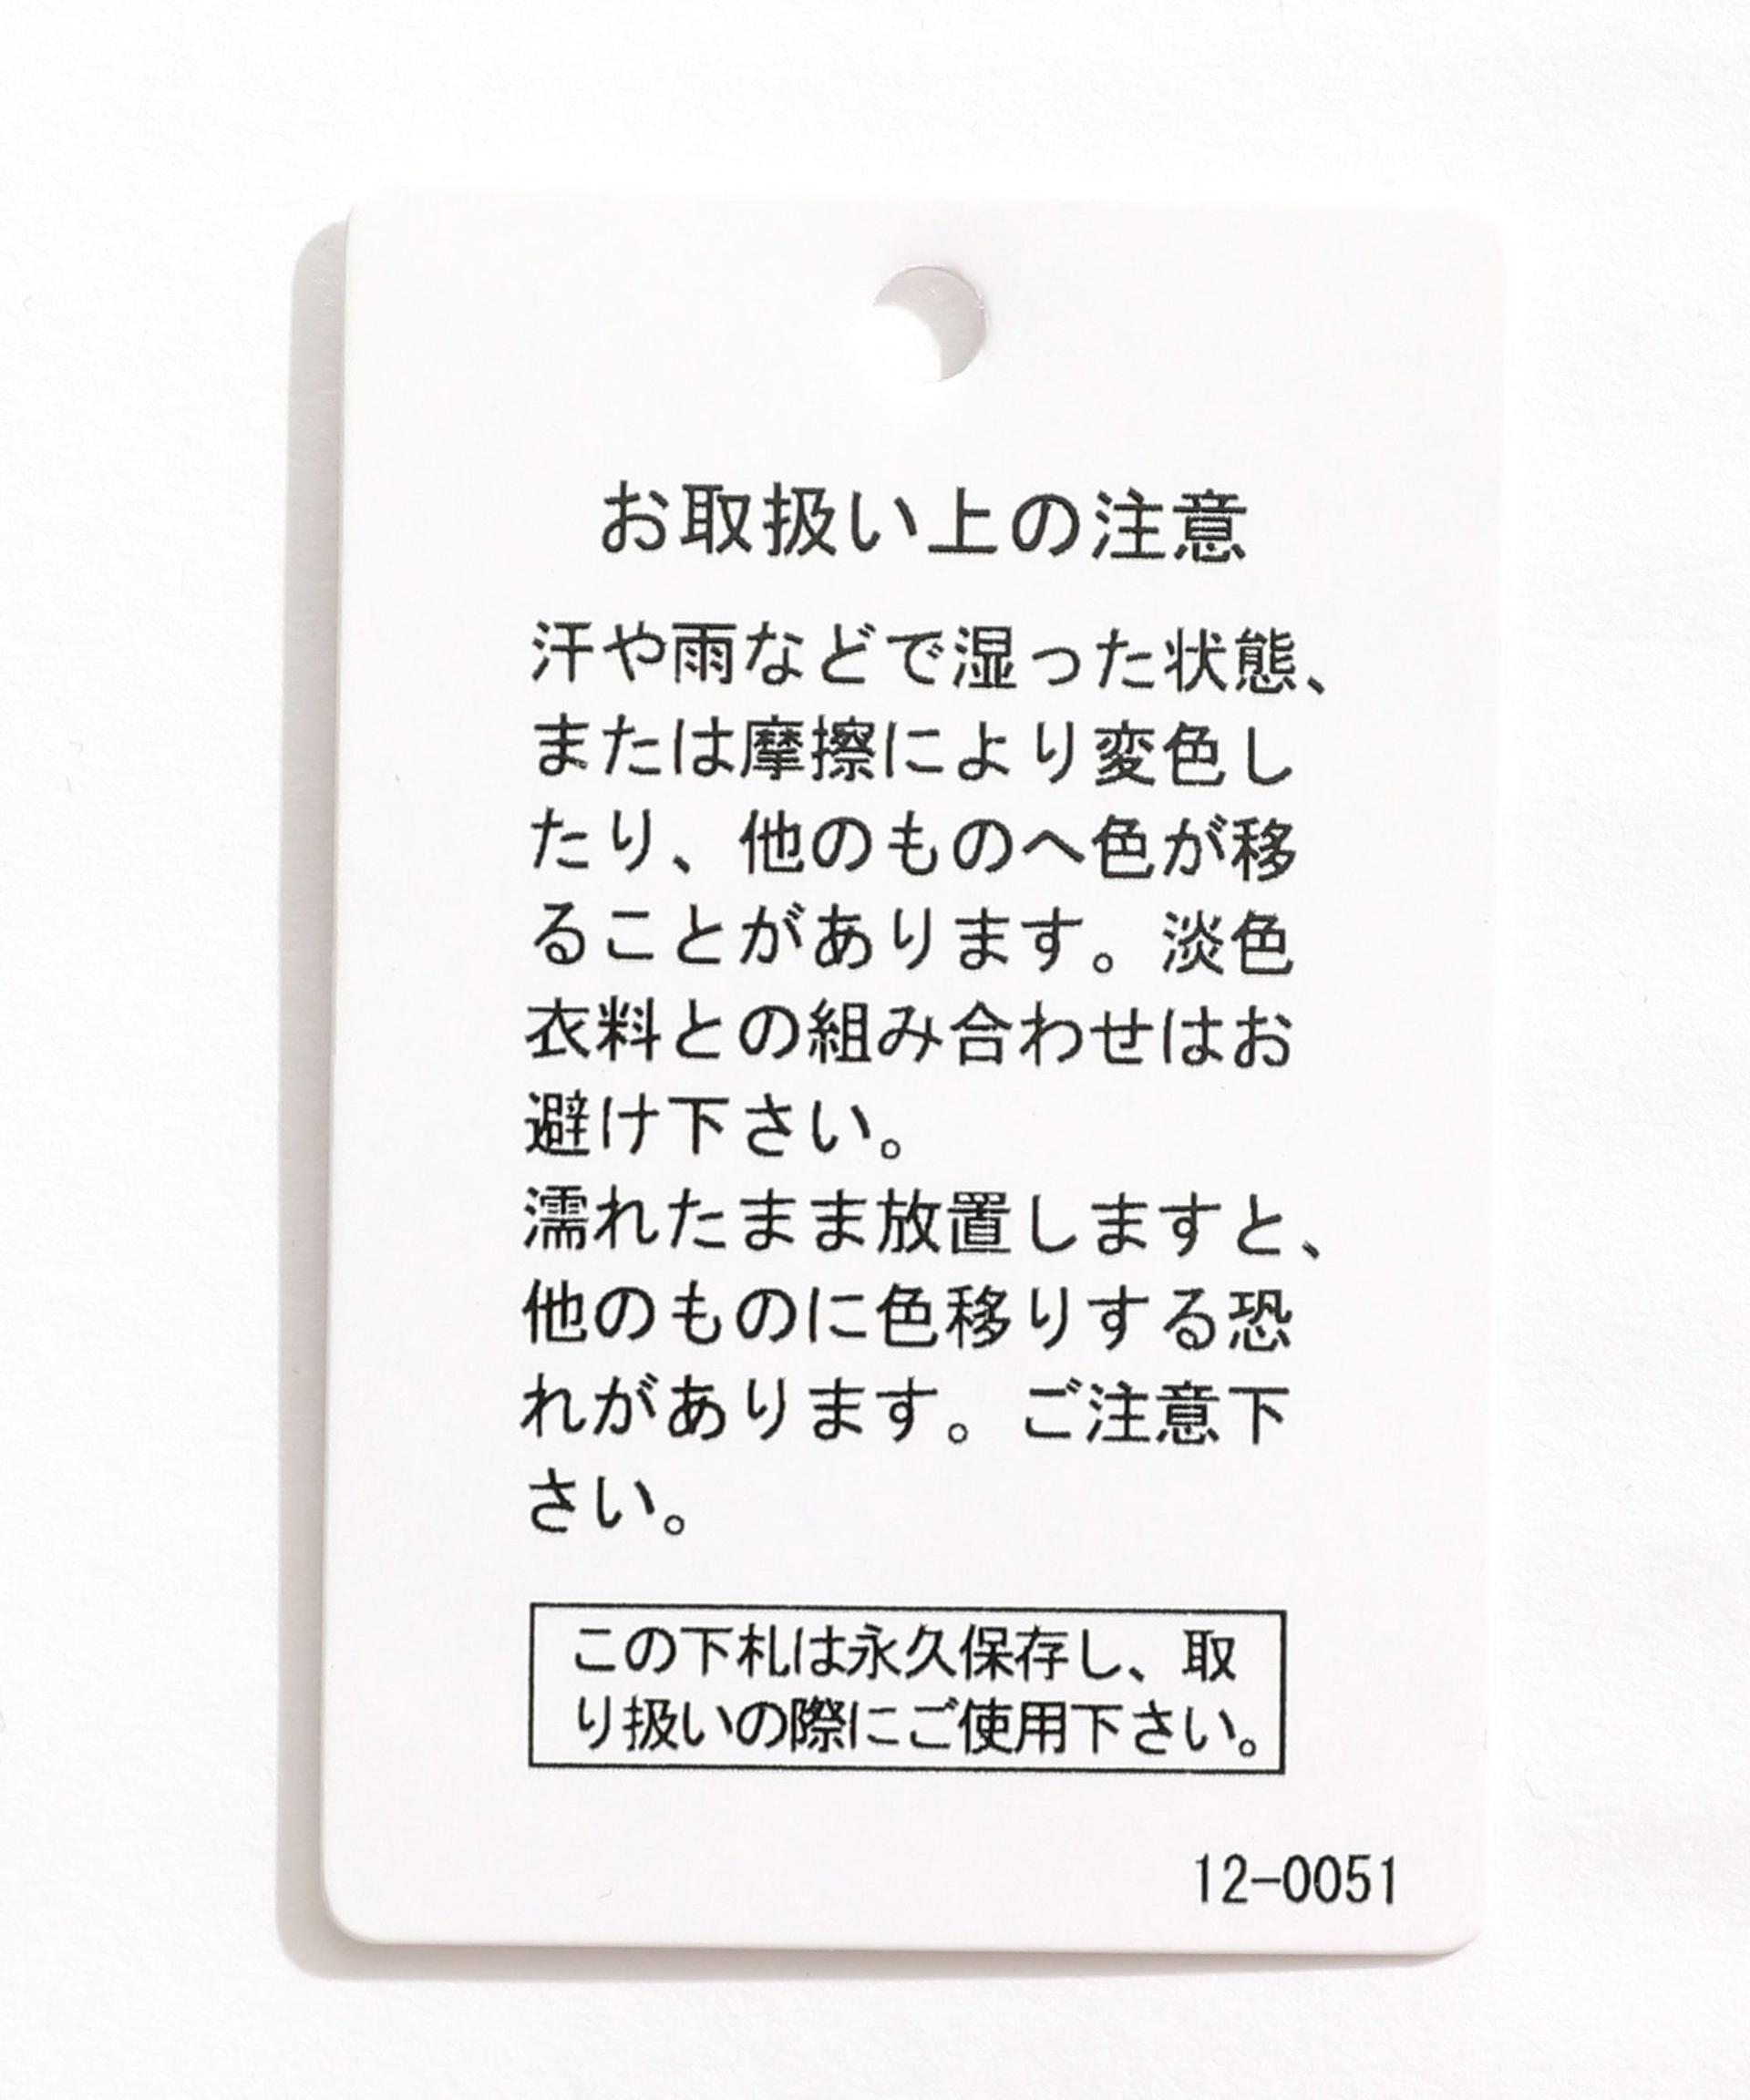 お取扱い上の注意
汗や雨などで湿った状態、
または摩擦により変色し
たり、他のものへ色が移
ることがあります。淡色
衣料との組み合わせはお
避け下さい。
濡れたまま放置しますと、
他のものに色移りする恐
れがあります。ご注意下
さい。
この下札は永久保存し、取
り扱いの際にご使用下さい。
12-0051